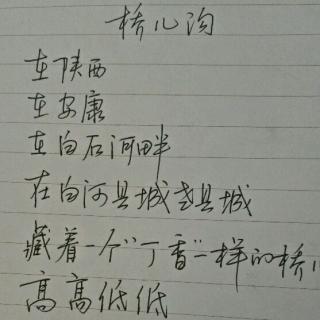 桥儿沟
在陕西
在安康
在白石河畔
在白河县城老县城
藏着一个"丁香"一样的桥儿
高高低低